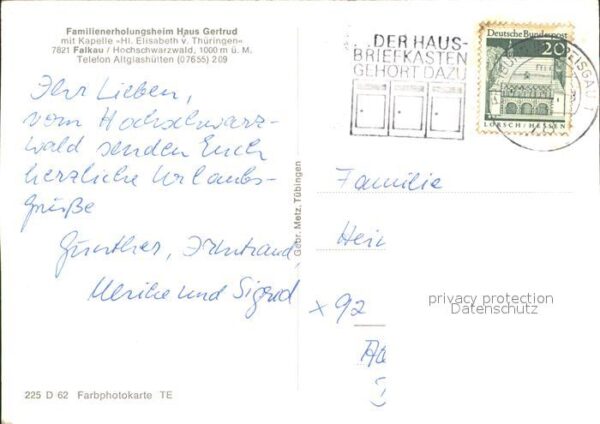 Familienerholungsheim Haus Gertrud
mit Kapelle «Hl. Elisabeth v. Thüringen»
7821 Falkau / Hochschwarzwald, 1000 m ü. M.
Telefon Altglashütten (07655) 209
Ihr Lieben,
vom Hochschwarz-
wald senden Euch
herzliche Urlaubs-
grüße
Günther, Irmtraud,
Ulrike und Sigrid
225 D 62 Farbphotokarte TE
Gebr. Metz, Tübingen
...DER HAUS-
BRIEFKASTEN
GEHÖRT DAZU
Deutsche Bundespost
20
LORSCH/HESSEN
Familie
Hei
x 92
privacy protection
Datenschutz